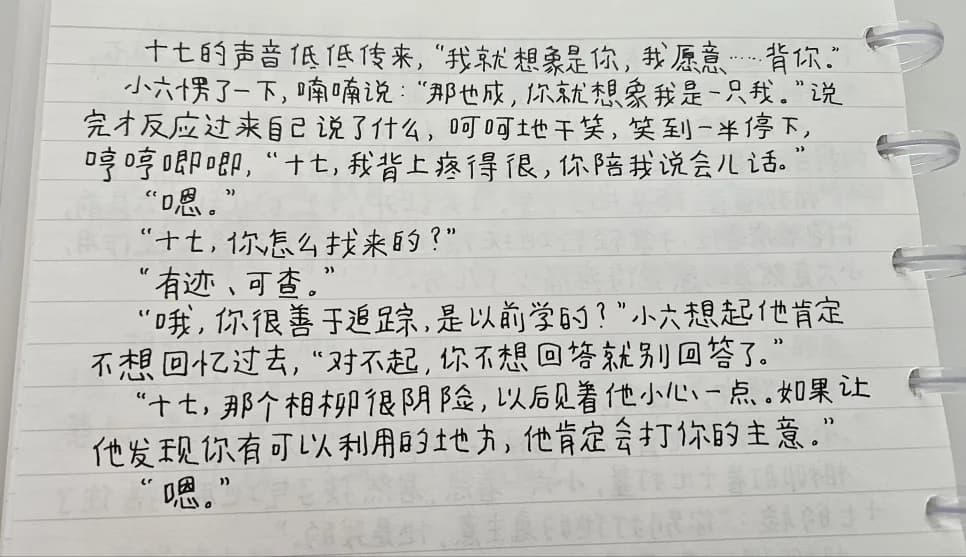 十七的声音低低传来，“我就想象是你，我愿意……背你。”
小六愣了一下，喃喃说：“那也成，你就想象我是一只我。”说
完才反应过来自己说了什么，呵呵地干笑，笑到一半停下，
哼哼唧唧，“十七，我背上疼得很，你陪我说会儿话。”
“嗯。”
“十七，你怎么找来的？”
“有迹、可查。”
“哦，你很善于追踪，是以前学的？”小六想起他肯定
不想回忆过去，“对不起，你不想回答就别回答了。”
“十七，那个相柳很阴险，以后见着他小心一点。如果让
他发现你有可以利用的地方，他肯定会打你的主意。”
“嗯。”